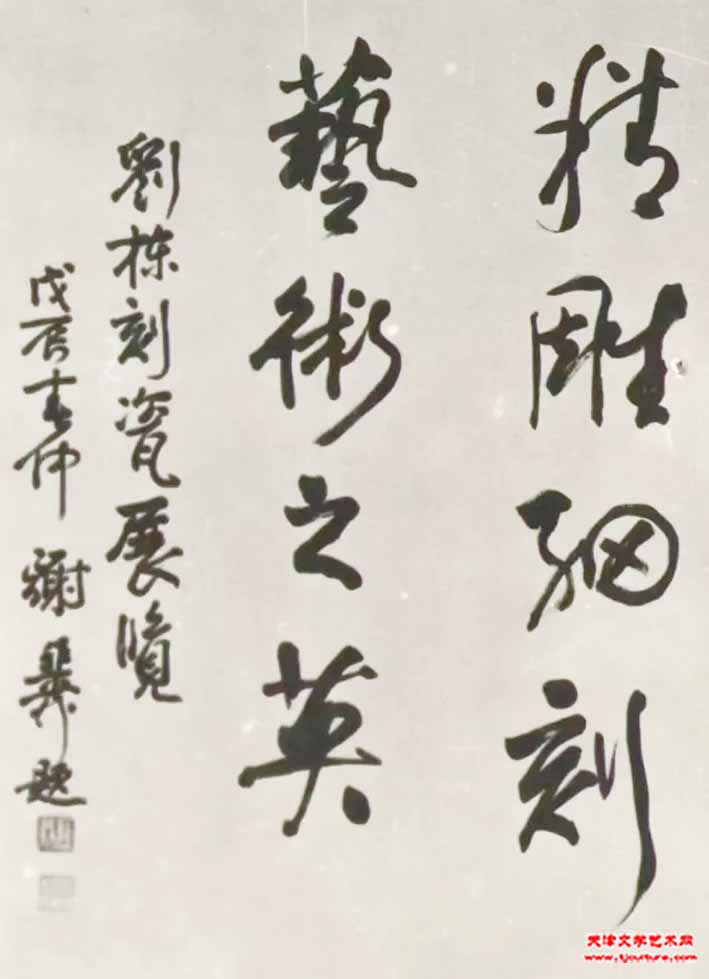 精雕细刻
藝術之英
劉栋刻瓷展覽
戊辰春仲 謝
题
天津文学艺术网
www.tjculture.com